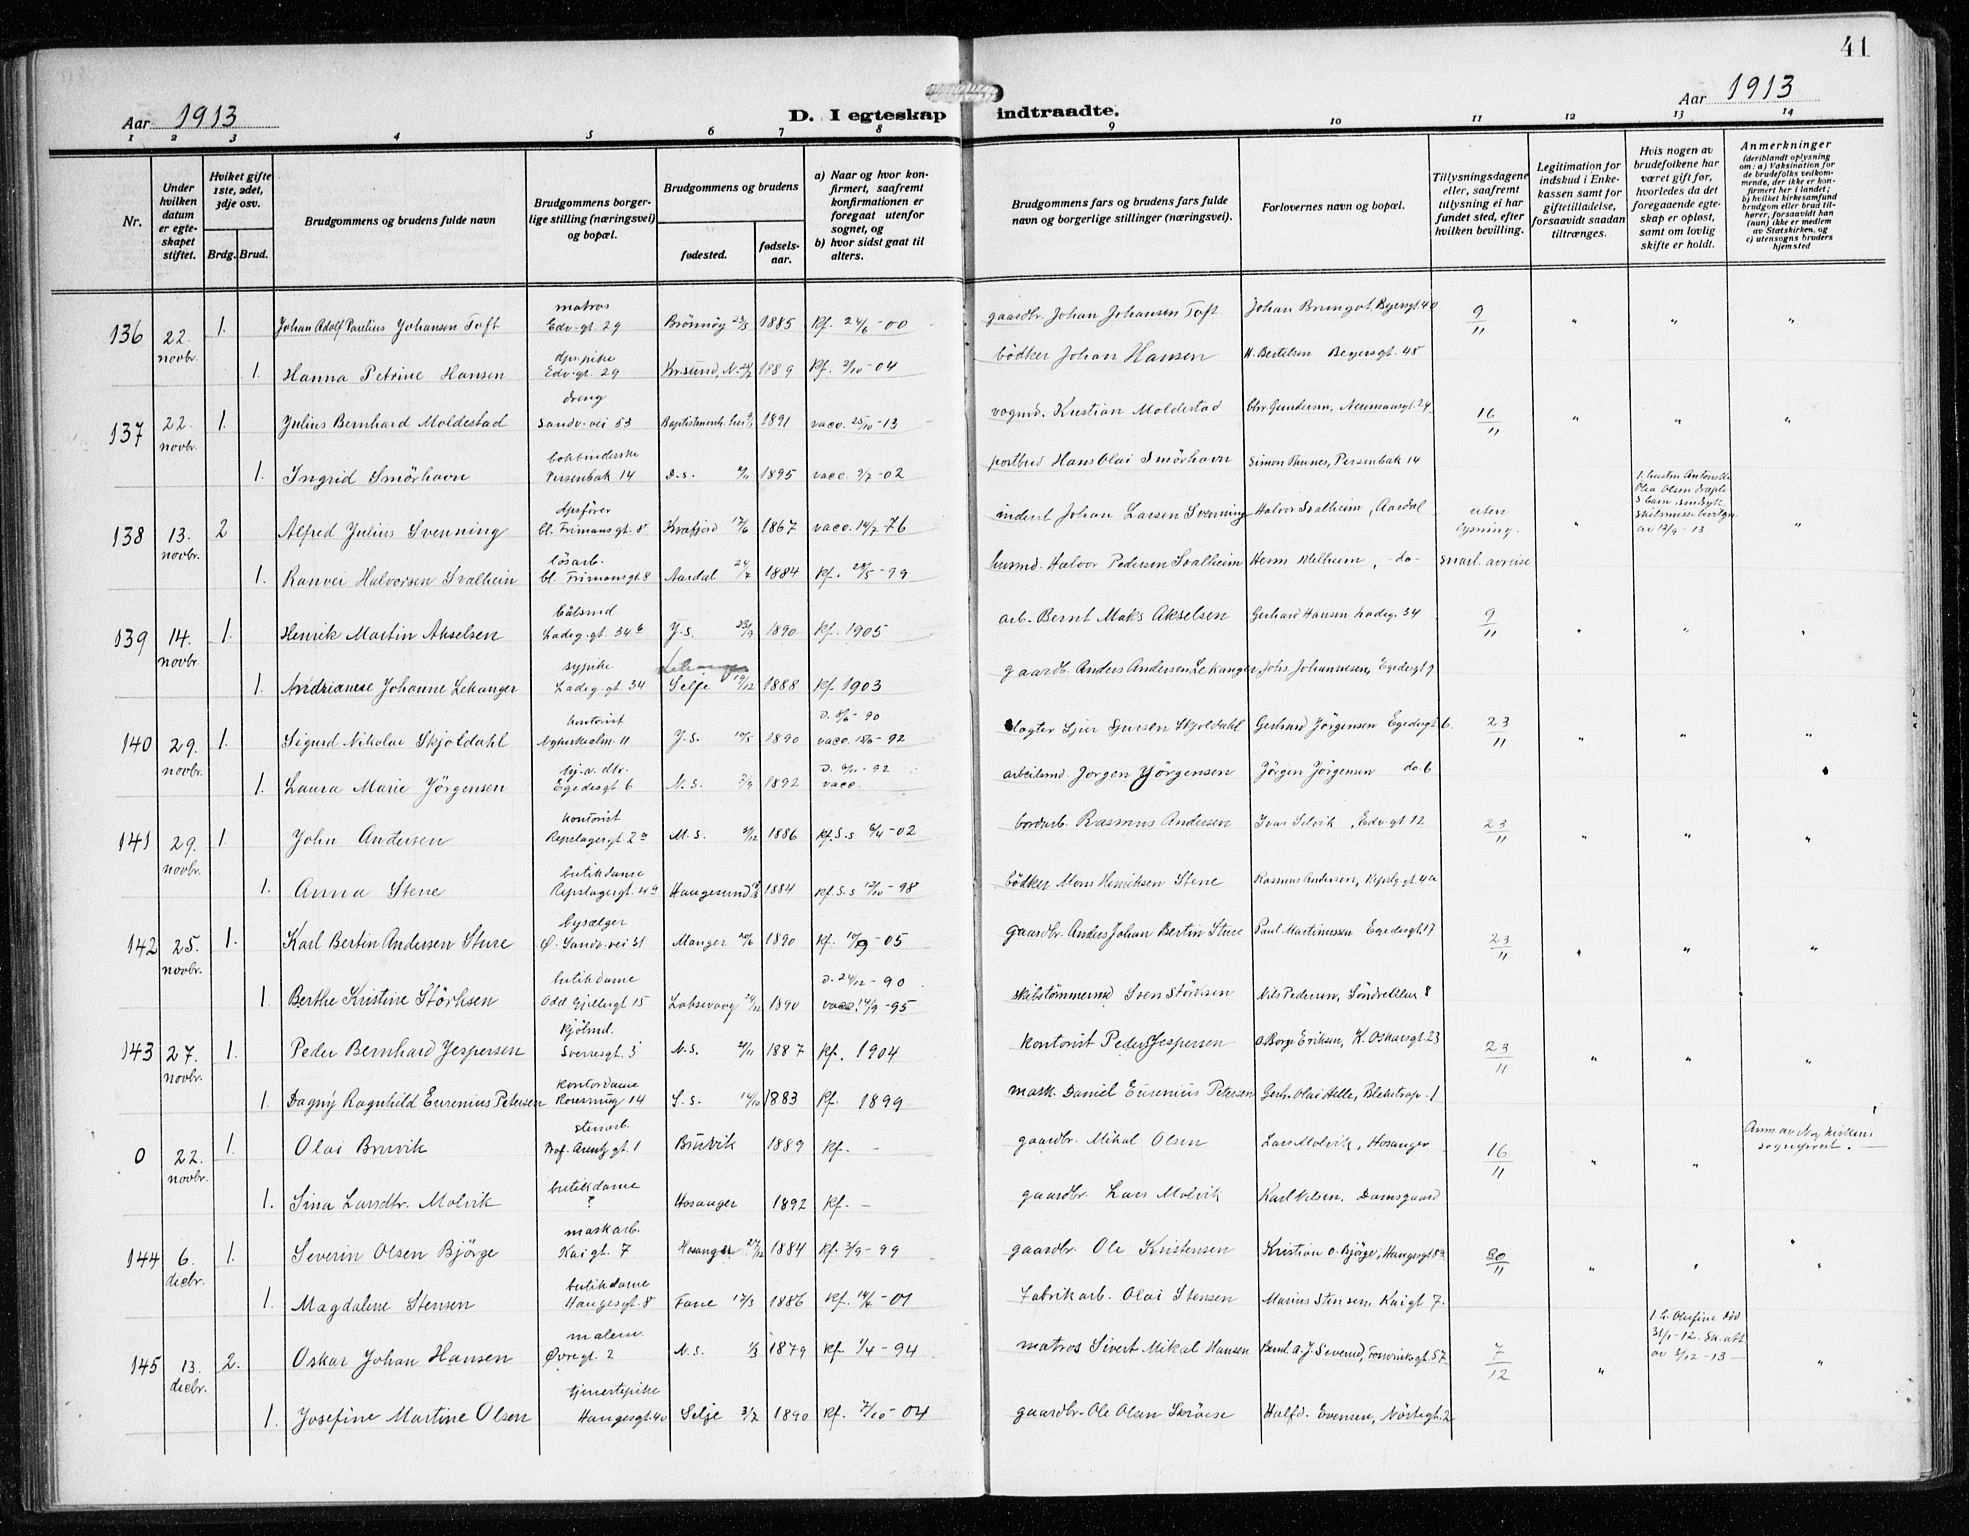 41
Aar 1913
D. I egteskap indtraadte.
Aar 1913
1 2 3 4 5 6 7 8 9 10 11 12 13 14
Nr.
Under hvilken datum er egteskapet stiftet.
Hviket gifte 1ste, 2det, 3dje osv.
Brdg. Brud.
Brudgommens og brudens fulde navn
Brudgommens borgerlige stilling (næringsvei) og bopæl.
Brudgommens og brudens
fødested.
fødselsaar.
a) Naar og hvor konfirmert, saafremt konfirmationen er foregaat utenfor sognet, og
b) hvor sidst gaat til alters.
Brudgommens fars og brudens fars fulde navn og borgerlige stillinger (næringsvei).
Forlovernes navn og bopæl.
Tillysningsdagene eller, saafremt tillysning ei har fundet sted, efter hvilken bevilling.
Legitimation for indskud i Enkekassen samt for giftetilladelse, forsaavidt saadan tiltrænges.
Hvis nogen av brudefolkene har været gift før, hvorledes da det foregaaende egteskap er opløst, samt om lovlig skifte er holdt.
Anmerkninger
(deriblandt oplysning om: a) Vaksination for de brudefolks vedkommende, der ikke er konfirmert her i landet; b) hvilket kirkesamfund brudgom eller brud tilhører, forsaavidt han (hun) ikke er medlem av Statskirken, og c) utensogns bruders hjemsted
136 22. novbr. 1. Johan Adolf Parelius Johansen Toft matros Edv.gt. 29 Brönnöy 23/5 1885 Kf. 24/6-00 gaardbr. Johan Johansen Toft Johan Brungot Byersgt. 40 9/11 " " "
1. Hanna Petrine Hansen Edv.gt. 29 Kr.sund, N. 1889 Kf. 2/10-04 bödker Johan Hansen H. Bertelsen Beyersgt. 45
137 22. novbr. 1. Julius Bernhard Moldestad dreng Sandv.vei 53 1891 vacc. 25/10-13 vognmd. Kristian Moldestad Chr Gundersen, Neumansgt. 24 16/11 " " "
1. Ingrid Smörhavn Persenbak 14 D.s. 1895 vacc. 2/7-02 postbud Hans Olai Smörhavn Simon Thunes, Persenbak 14
138 13. novbr. 2 Alfred Julius Svenning dpsförer bl. Frimansgt. 8 Kvæfjord 17/6 1867 vacc. 14/7-76 inderst Johan Larsen Svenning Halvor Svalheim, Aardal uten lysning. " 1. hustru Olia Olsen 3 barn skilsmisse bevilgn. av 12/9-13 "
1. Ranvei Halvorsen Svalheim lösarb. bl. Frimansgt. 8 Aardal 24/7 1884 Kf. 28/5-99 husmd. Halvor Pedersen Svalheim Herm Melheim, -do- snarl. avreise
139 14. novbr. 1. Henrik Martin Akselsen båtsmd. Ladeg.gt. 34b J.s. 23/9 1890 Kf. 1905 arb. Bernt Maks Akselsen Gerhard Hansen Ladeg. 34 9/11 " " "
1. Andrianese Johanne Lekanger sypike Ladeg.gt. 34 Selje 19/12 1888 Kf. 1903 gaardb. Anders Andersen Lekanger Johs Johannesen, Egedesgt 9
140 29. novbr. 1. Sigurd Nikolai Skjoldahl kontorist Nykirkealm. 11 J.s. 10/5 1890 D. 8/6-90 vacc. -92 slagter Sjur Sjursen Skjoldahl Gerhard Jörgensen Egedesgt 6. 23/11 " " "
1. Laura Marie Jörgensen hj.v. dtr. Egedesgt 6 N.s. 7/9 1892 D. 6/11-92 vacc. arbeidsmd Jørgen Jörgensen Jörgen Jörgensen do. 6
141 29. novbr. 1. John Andersen kontorist Repslagergt. 2a M.s. 1886 Kf. S.s 6/4-02 bordarb. Rasmus Andersen Ivar Selvik, Edv.gt 12 23/11 " " "
1. Anna Stene butikdame Repslagergt. 4a Haugesund 1884 Kf. S.s 12/10-98 bödker Mons Henriksen Stene Rasmus Andersen, Repslg.gt. 4a
142 25. novbr. 1. Karl Bertin Andersen Sture bysælger Ø. Sandv.vei 31 Manger 20/6 1890 Kf. 10/9-05 gaardbr. Anders Johan Bertin Sture Paul Martinussen Egedesgt. 17 23/11 " " "
1. Berthe Kristine Störksen butikdame Odd Gjellesgt 15 Laksevaag 24/11 1890 D. 24/12-90 vacc. 14/9-95 skibstömmermd Sven Störksen Nils Pedersen, Söndre Allee 8
143 27. novbr. 1. Peder Bernhard Jespersen kjölmd. Sverresgt. 5 N.s. 1887 Kf. 1904 kontorist Peder Jespersen O. Borge Eriksen, K. Oskarsgt 23 23/11 " " "
1. Dagny Ragnhild Eusenius Petersen kontordame Rosesmug 14 S.s. 14/10 1883 Kf. 1899 mask. Daniel Eusenius Petersen Gerh. Olai Helle, Blekstrap. 1
0 22. novbr. 1. Olai Bruvik stenarb. Prof. Arentz gt. 1 Bruvik 1889 Kf. - gaardbr. Mikal Olsen Lars Molvik, Hosanger 16/11 " " Anm av Nykirkens sogneprest.
1. Sina Larsdtr. Molvik butikdame ? Hosanger 1892 Kf. - gaardbr. Lars Molvik Karl Nilsen, Damsgaard
144 6. decbr. 1. Severin Olsen Bjørge maskarb. Kaigt. 7 Hosanger 27/12 1884 Kf. 3/9-99 gaardbr. Ole Kristensen Kristian O. Bjørge, Haugesgt 8a 30/11 " " "
1. Magdalene Stensen butikdame Haugesgt. 8 Fane 17/3 1886 Kf. 14/4-01 Fabrikarb. Olai Stensen Marius Stensen, Kaigt 7.
145 13. decbr. 2. Oskar Johan Hansen malem. Øvregt. 2 N.s. 1/3 1879 Kf. 1/4-94 matros Sivert Mikal Hansen Bernt A.J. Severud, Forsvinksgt. 57 7/12 " 1. h. Olufine död 31/1-12. Sk.att av 3/12-13 "
1. Josefine Martine Olsen tjenestepike Haugesgt. 40 Selje 3/7 1890 Kf. 2/10-04 gaardbr. Ole Olsen Skröese Halfd. Evensen, Nöstegt. 2